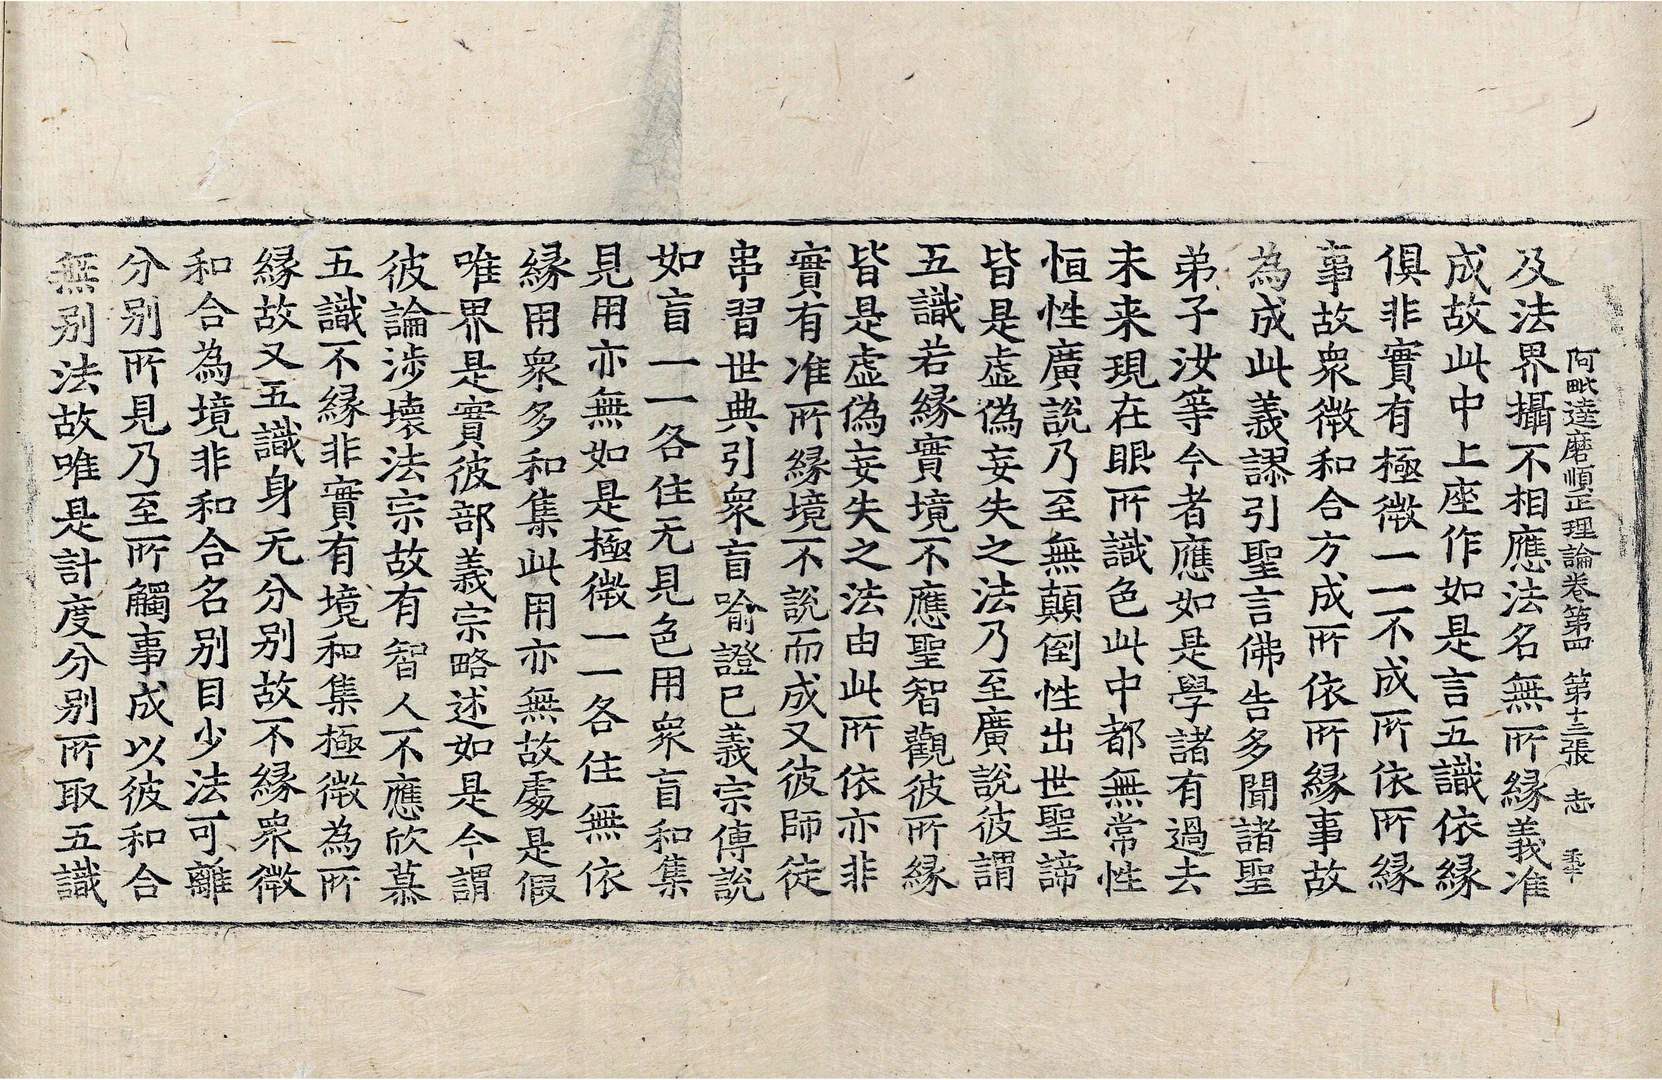 阿毗達磨順正理論卷第四　第十三張　志
及法界攝不相應法名無所緣義准
成故此中上座作如是言五識依緣
俱非實有極微一一不成所依所緣
事故衆微和合方成所依所緣事故
為成此義謬引聖言佛告多聞諸聖
弟子汝等今者應如是學諸有過去
未来現在眼所識色此中都無常性
恒性廣說乃至無顛倒性出世聖諦
皆是虛偽妄失之法乃至廣說彼謂
五識若緣實境不應聖智觀彼所緣
皆是虛偽妄失之法由此所依亦非
實有准所緣境不說而成又彼師徒
串習世典引衆盲喻證已義宗傳說
如盲一一各住无見色用衆盲和集
見用亦無如是極微一一各住無依
緣用衆多和集此用亦無故處是假
唯界是實彼部義宗略述如是今謂
彼論涉壞法宗故有智人不應欣慕
五識不緣非實有境和集極微為所
緣故又五識身无分别故不緣衆微
和合為境非和合名别目少法可離
分别所見乃至所觸事成以彼和合
無别法故唯是計度分别所取五識